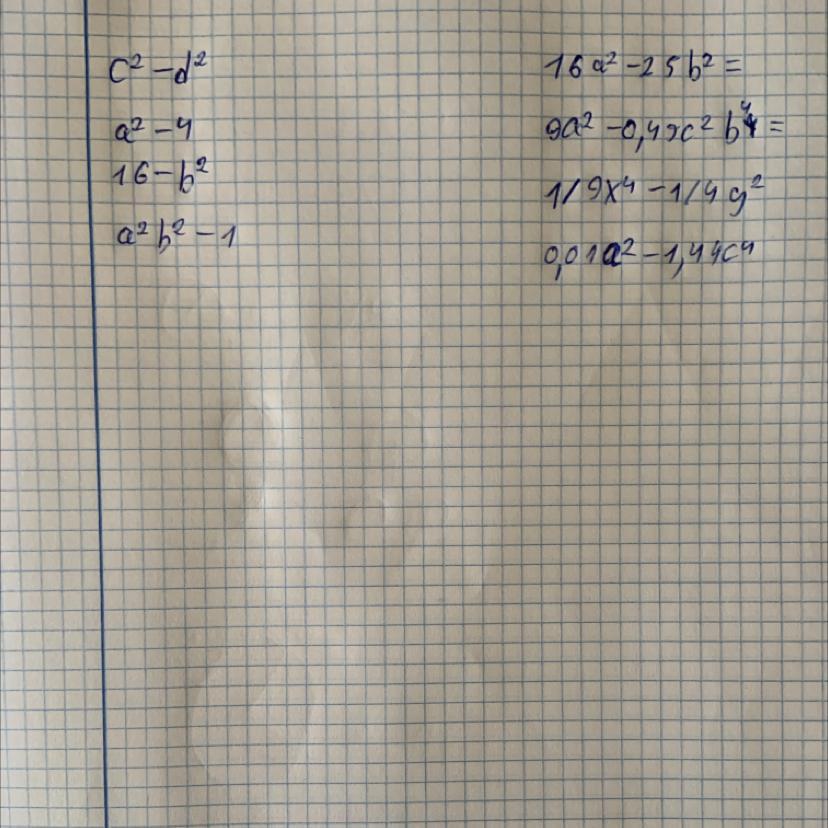 c² - d²
a² - 4
16 - b²
a² b² - 1
16 a² - 25 b² =
9a² - 0,49c² b⁴ =
1/9x⁴ - 1/4 y²
0,01a² - 1,44c⁴